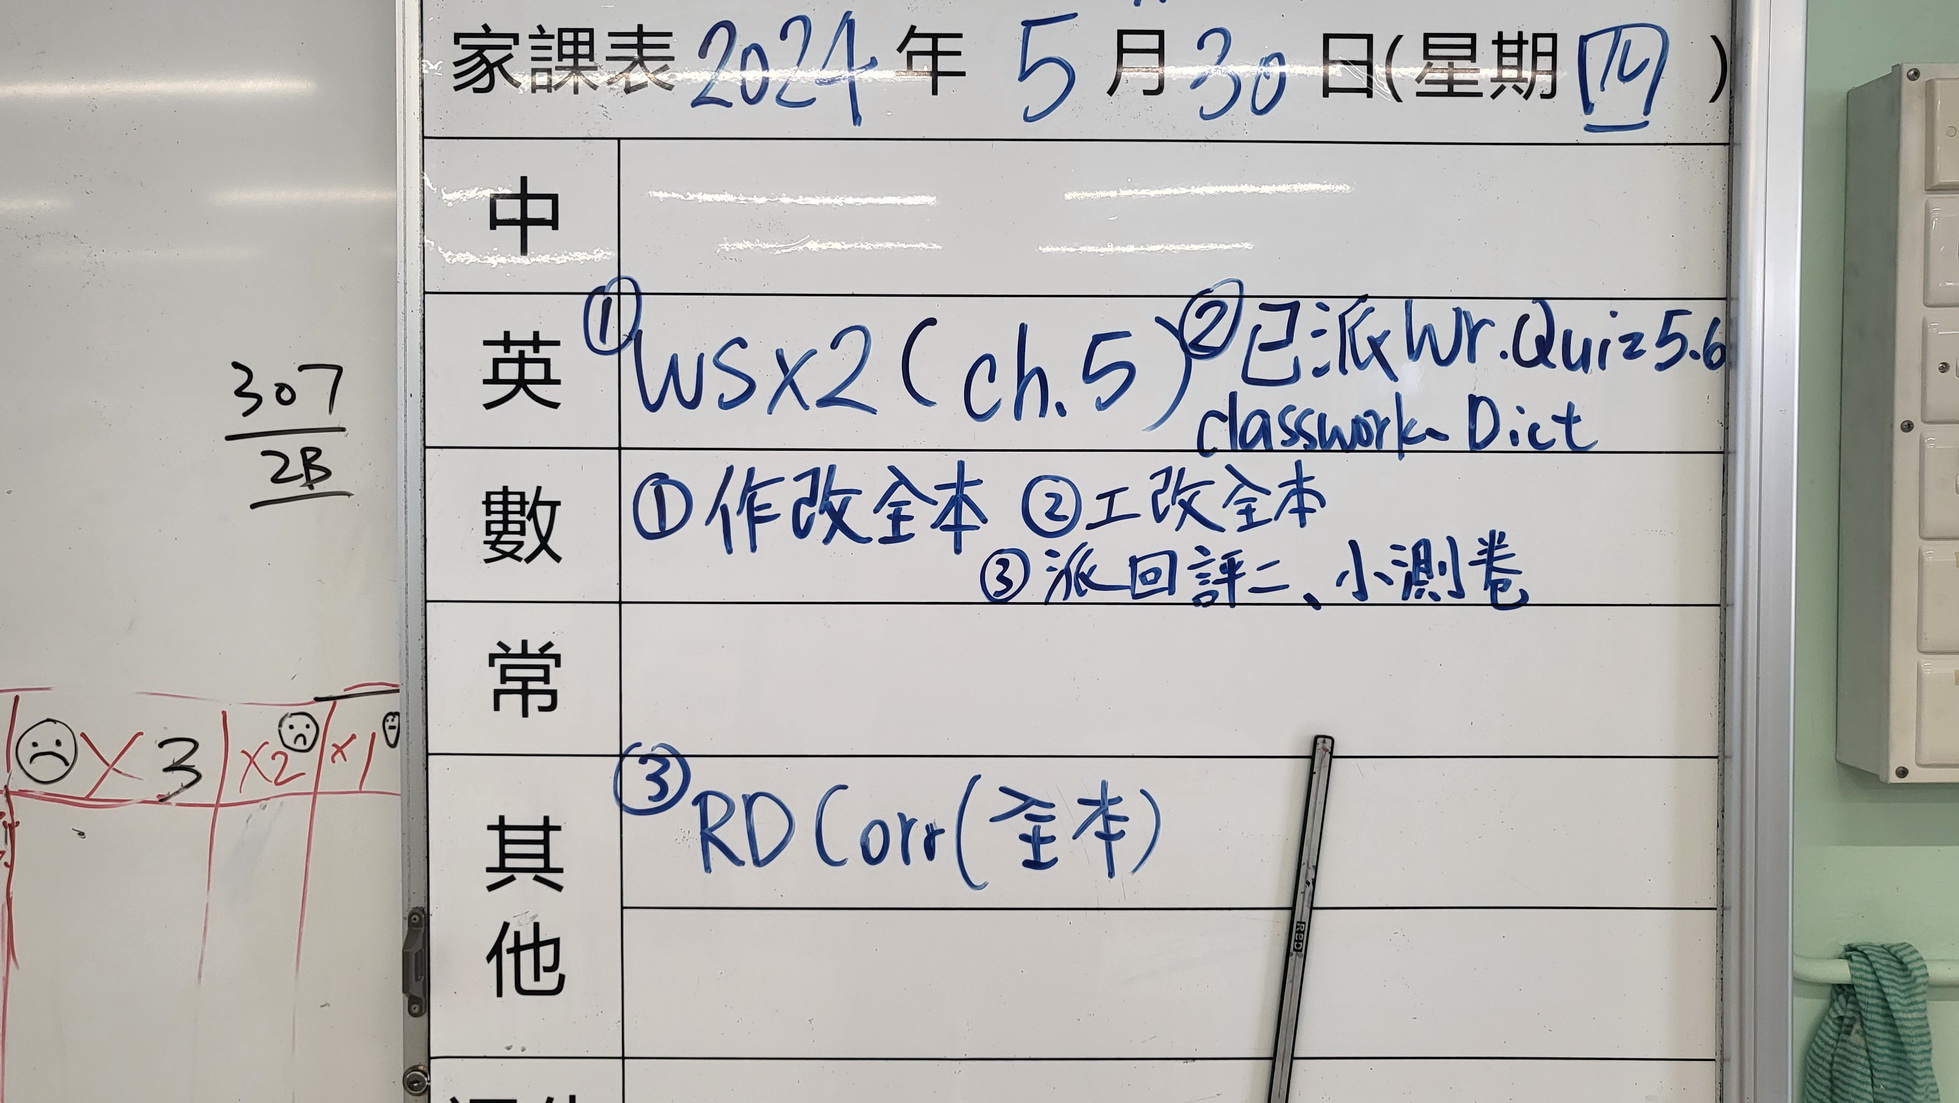 家課表 2024 年 5 月 30 日(星期 四 )
中
英 ① WS x2 (ch. 5) ② 已派 Wr. Quiz 5.6
classwork、Dict
數 ① 作改全本 ② 工改全本
③ 派回評二、小測卷
常
其他 ③ RD Corr (全本)
307
2B
x 3 x2 x1